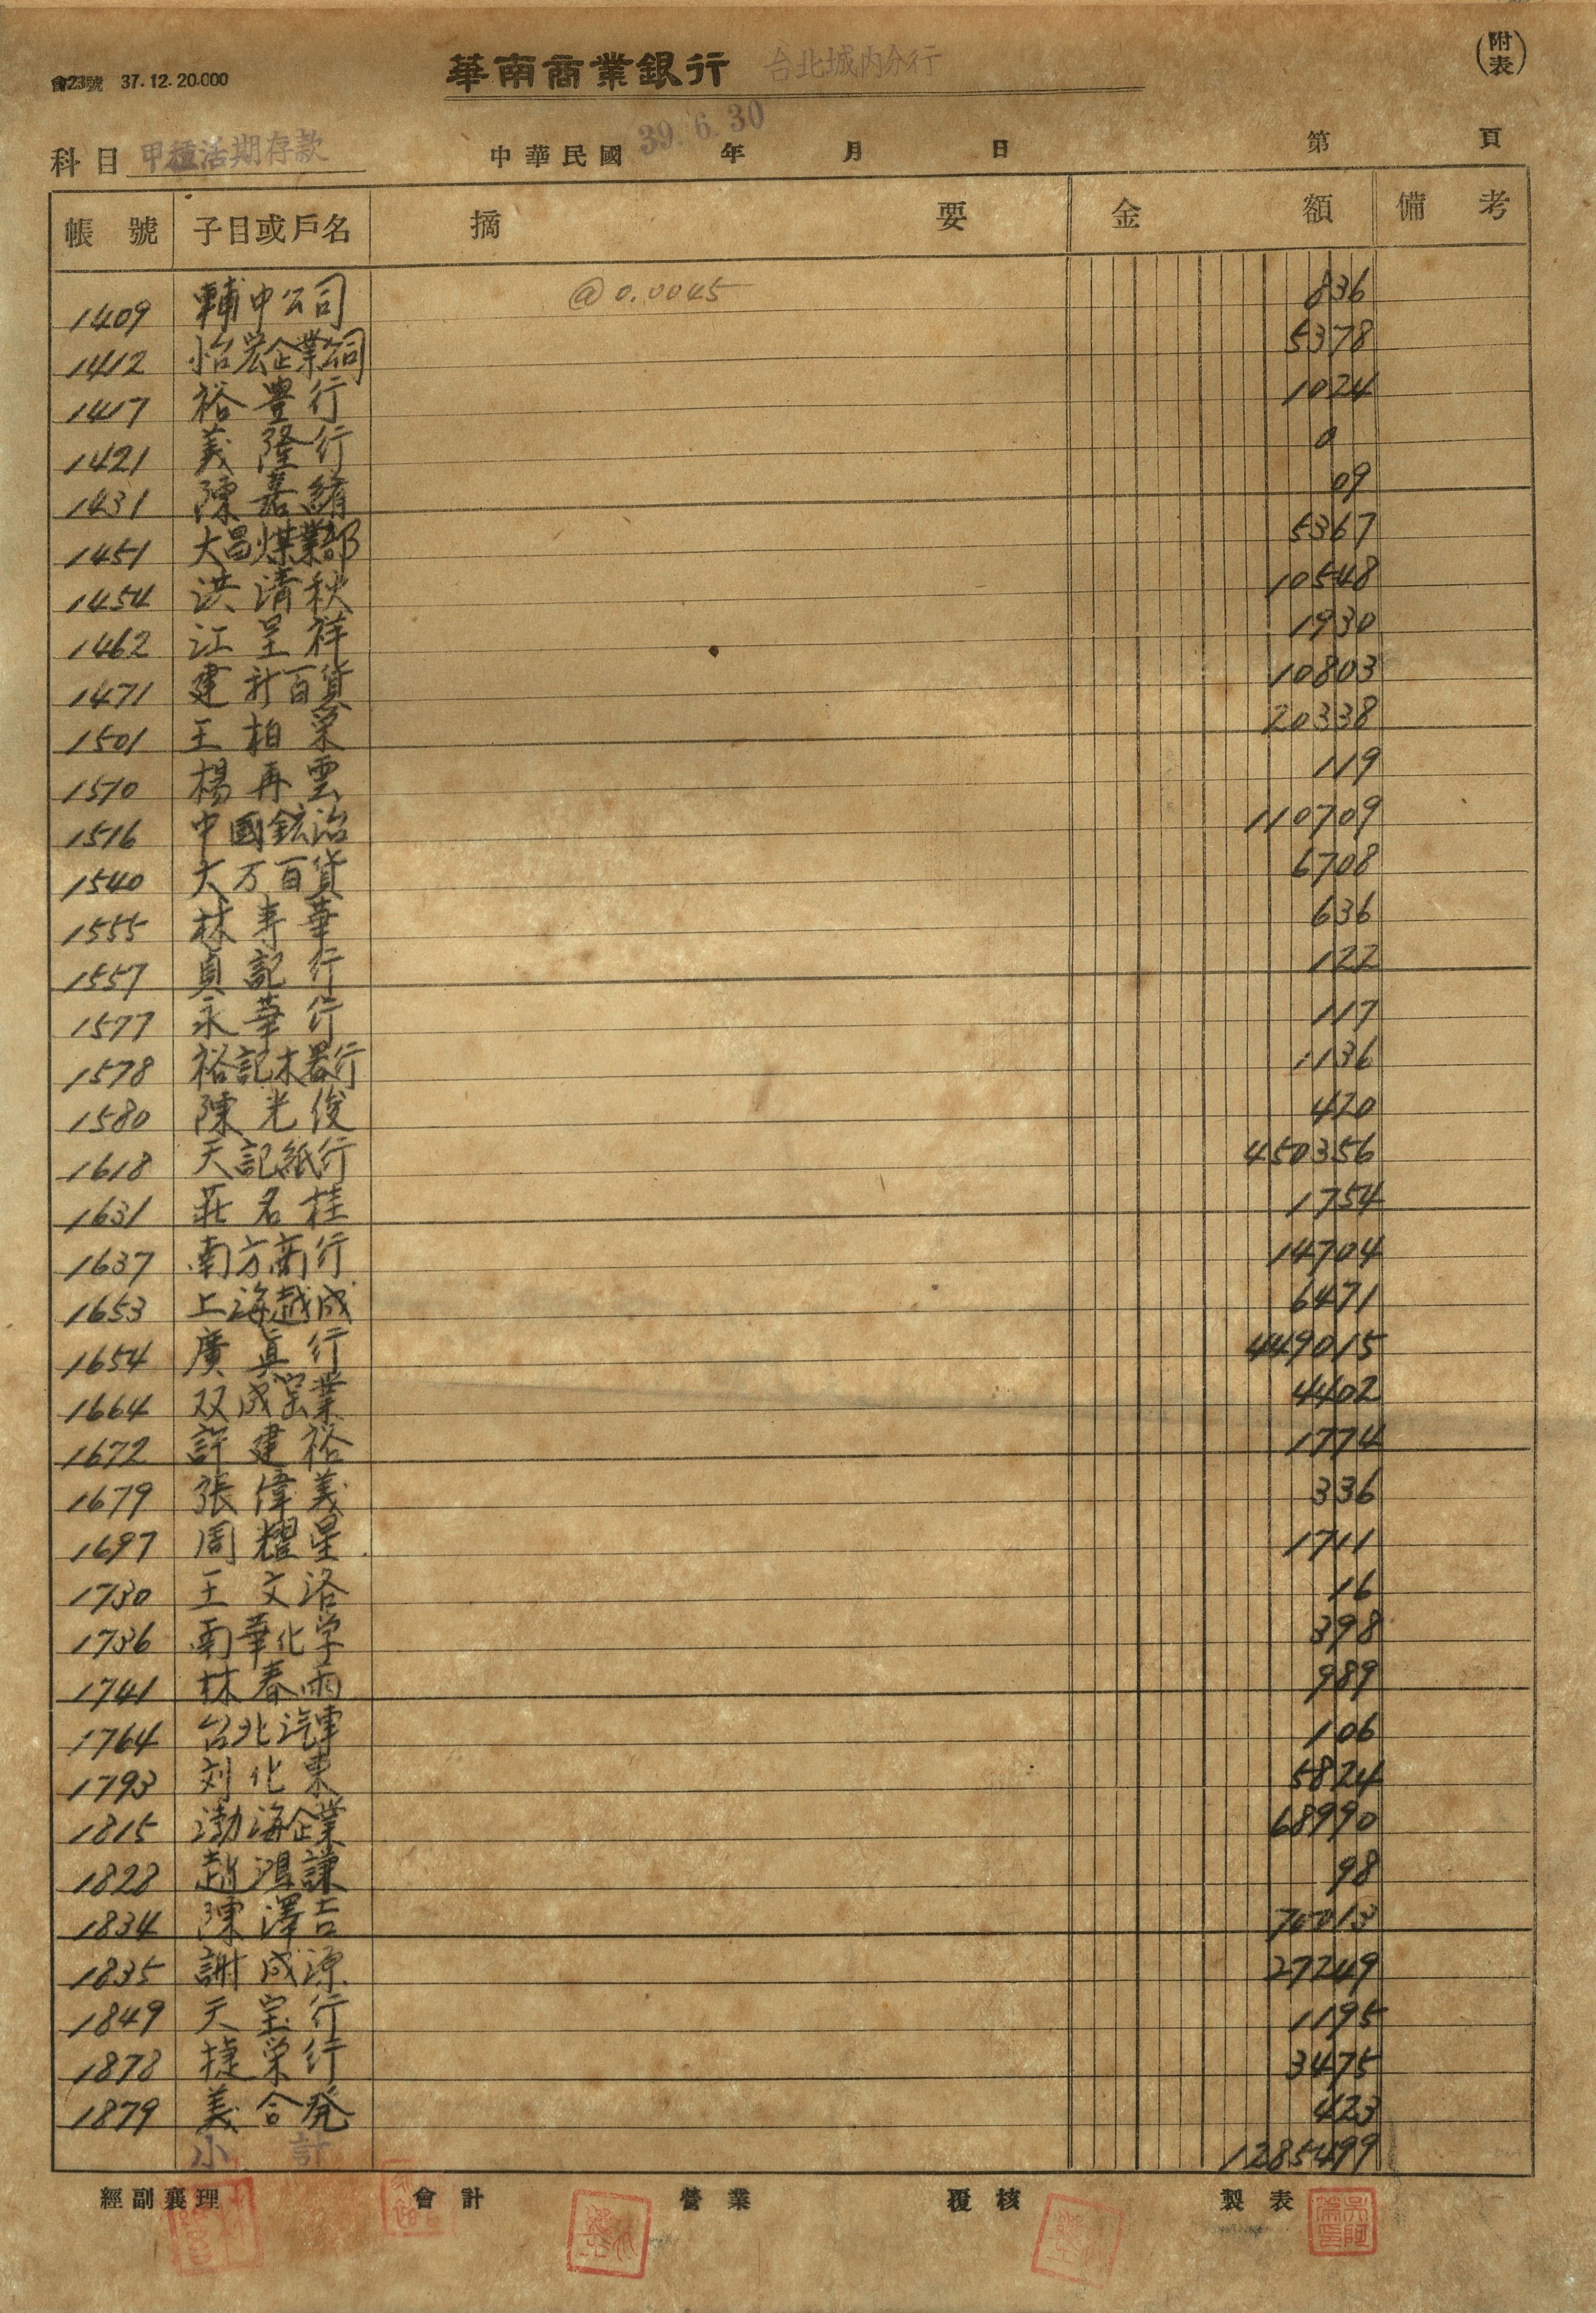 會23號 37.12.20.000
華南商業銀行 台北城內分行
(附表)
科目 甲種活期存款 中華民國 39.6.30 年 月 日 第 頁
帳號 子目或戶名 摘要 金額 備考
1409 輔中公司 @0.0045 836
1412 怡宏企業公司 5378
1417 裕豊行 1024
1421 義隆行 0
1431 陳嘉績 09
1451 大昌煤業部 5367
1454 洪清秋 10548
1462 江呈祥 1930
1471 建新百貨 10803
1501 王柏栄 20338
1510 楊再雲 119
1516 中國鉱冶 110709
1540 大万百貨 6708
1555 林寿華 636
1557 貞記行 122
1577 永華行 117
1578 裕記木器行 1136
1580 陳光俊 420
1618 天記紙行 450356
1631 莊名桂 1754
1637 南方商行 14704
1653 上海越成 6471
1654 廣真行 449015
1664 双成窑業 4402
1672 許建裕 1774
1679 張偉義 336
1697 周耀星 1711
1730 王文洛 16
1736 南華化学 398
1741 林春雨 989
1764 台北汽車 106
1793 刘化東 5824
1815 渤海企業 68990
1828 趙鴻謙 98
1834 陳澤吉 70013
1835 謝成源 27249
1849 天宝行 1195
1878 捷栄行 3475
1879 義合発 423
小計 1285499
經副襄理 會計 營業 覆核 製表